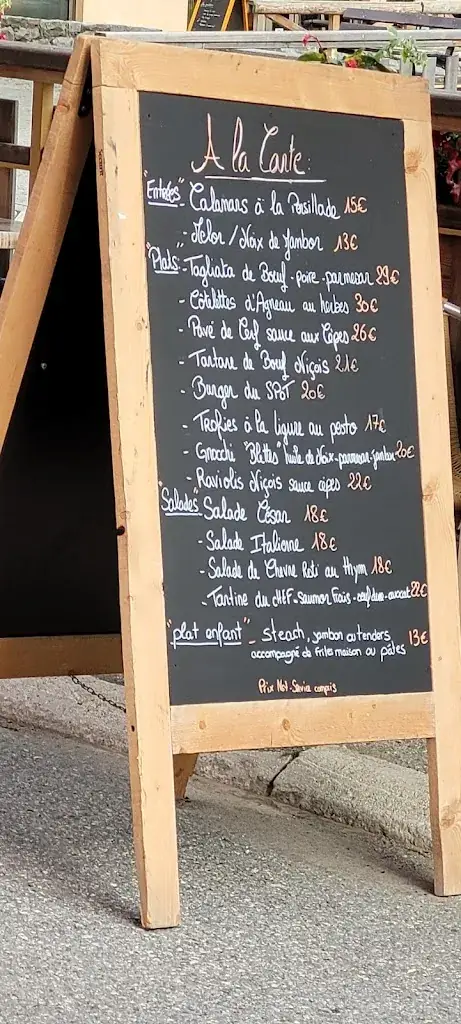 A la Carte :
"Entrées" Calamars à la Persillade 15€
- Melon / Noix de Jambon 13€
"Plats" - Tagliata de Boeuf - poire - parmesan 29€
- Côtelettes d'Agneau au herbes 30€
- Pavé de Cerf sauce aux Cèpes 26€
- Tartare de Boeuf Niçois 21€
- Burger du SPOT 20€
- Trofies à la ligure au pesto 17€
- Gnocchi "Blettes" huile de Noix - parmesan - jambon 20€
- Raviolis Niçois sauce cèpes 22€
"Salades" Salade César 18€
- Salade Italienne 18€
- Salade de Chèvre Roti au thym 18€
- Tartine du CHEF - Saumon Frais - - avocat 22€
"plat enfant" - steach, jambon ou tenders 13€
accompagné de frites maison ou pâtes
Prix Net - Service compris